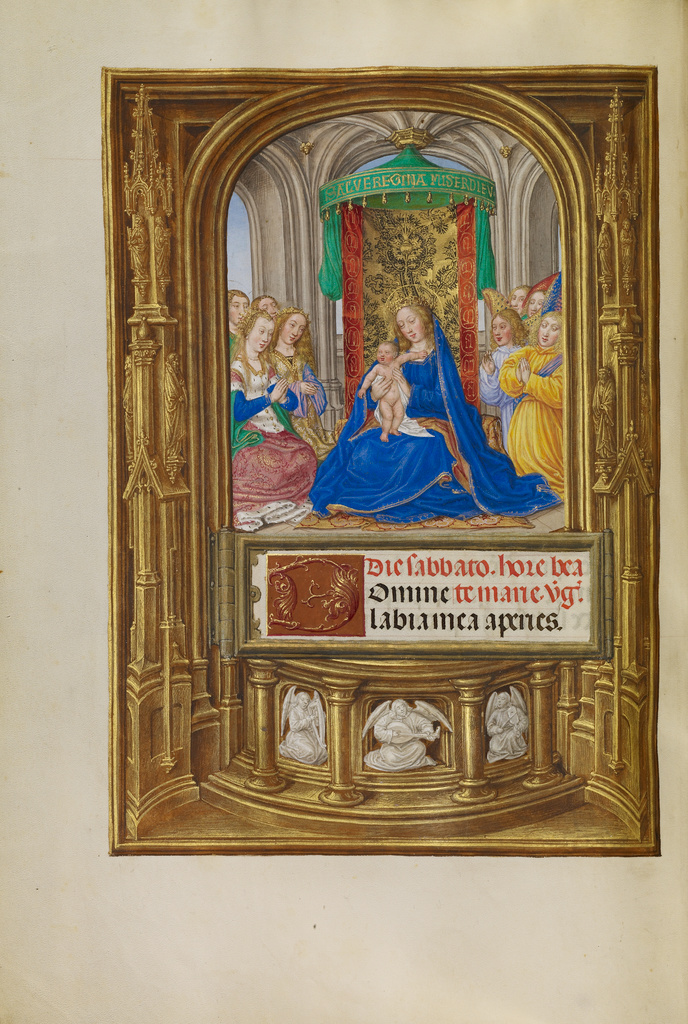 SALVE REGINA MISERDIEV
Die sabbato. hore bea
Omine te marie. vgĩ.
labia mea aperies.